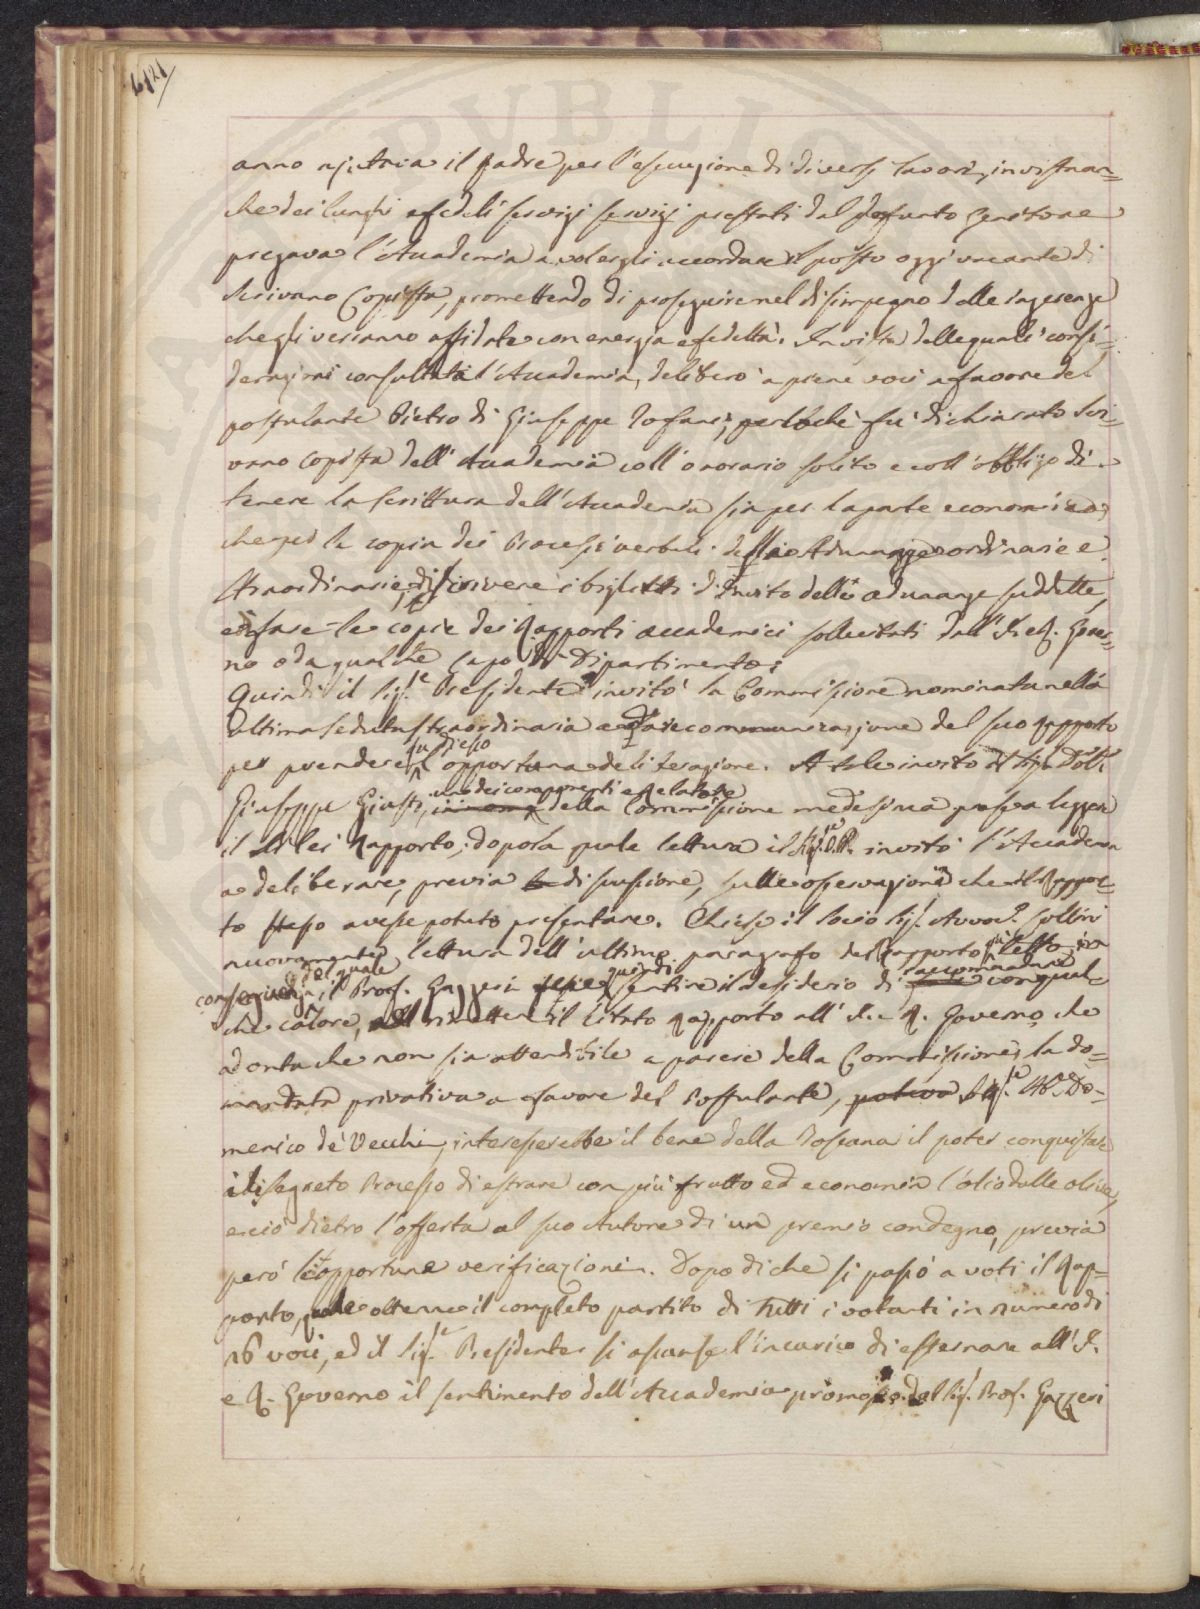 anno assisteva il Padre per l'esecuzione di diversi lavori, in vista an=
che dei lunghi e fedeli servigj servigj prestati dal defunto Genitore
pregava l'Accademia a volergli accordare il posto oggi vacante di
Scrivano Copista, promettendo di proseguire nel disimpegno delle ingerenze
che gli verranno affidate con energia e fedeltà. In vista delle quali consi=
derazioni consultata l'Accademia, deliberò a piene voci a favore del
postulante Pietro di Giuseppe Tofani; perlochè fu dichiarato Scri=
vano Copista dell'Accademia coll'onorario solito e coll'obbligo di
tenere la Scrittura dell'Accademia sia per la parte economica,
che per la copia dei Processi verbali delle Adunanze ordinarie e
straordinarie, di scrivere i biglietti d'Invito delle adunanze suddette,
e di fare le copie dei Rapporti accademici sollecitati dall'I. e R. Gover=
no o da qualche Capo di Dipartimento.
Quindi il Sig.re Presidente invitò la Commissione nominata nella
ultima seduta straordinaria a dare comunicazione del suo rapporto
per prendere su di esso opportuna deliberazione. A tale invito il Sig. Dott.
Giuseppe Giusti, uno dei componenti e Relatore della Commissione medesima passò a leggere
il di lei Rapporto; dopo la quale lettura il Sig.re P. invitò l'Accademia
a deliberare, previa discussione, sulle osservazioni che il Rappor=
to stesso avesse potuto presentare. Chiese il Socio Sig. Avvoc.
nuovamente lettura dell'ultimo paragrafo del rapporto
conseguenza del quale il Prof. Gazzeri fece quindi sentire il desiderio di raccomandare con qual=
che calore, nel rimettere il citato rapporto all'I. e R. Governo, che
ad onta che non sia attendibile a parere della Commissione, la do=
mandata privativa a favore del Postulante, poteva Sig.re Do=
menico de' Vecchi, interesserebbe il bene della Toscana il poter conquistare
il segreto Processo di estrarre con più frutto ed economia l'olio dalle olive,
e ciò dietro l'offerta al suo Autore di un premio condegno, previa
però le opportune verificazioni. Dopo di che si passò a voti il Rap=
porto, che ottenne il completo partito di tutti i votanti in numero di
16 voci, ed il Sig.re Presidente si assunse l'incarico di esternare all'I.
e R. Governo il sentimento dell'Accademia promosso dal Sig. Prof. Gazzeri